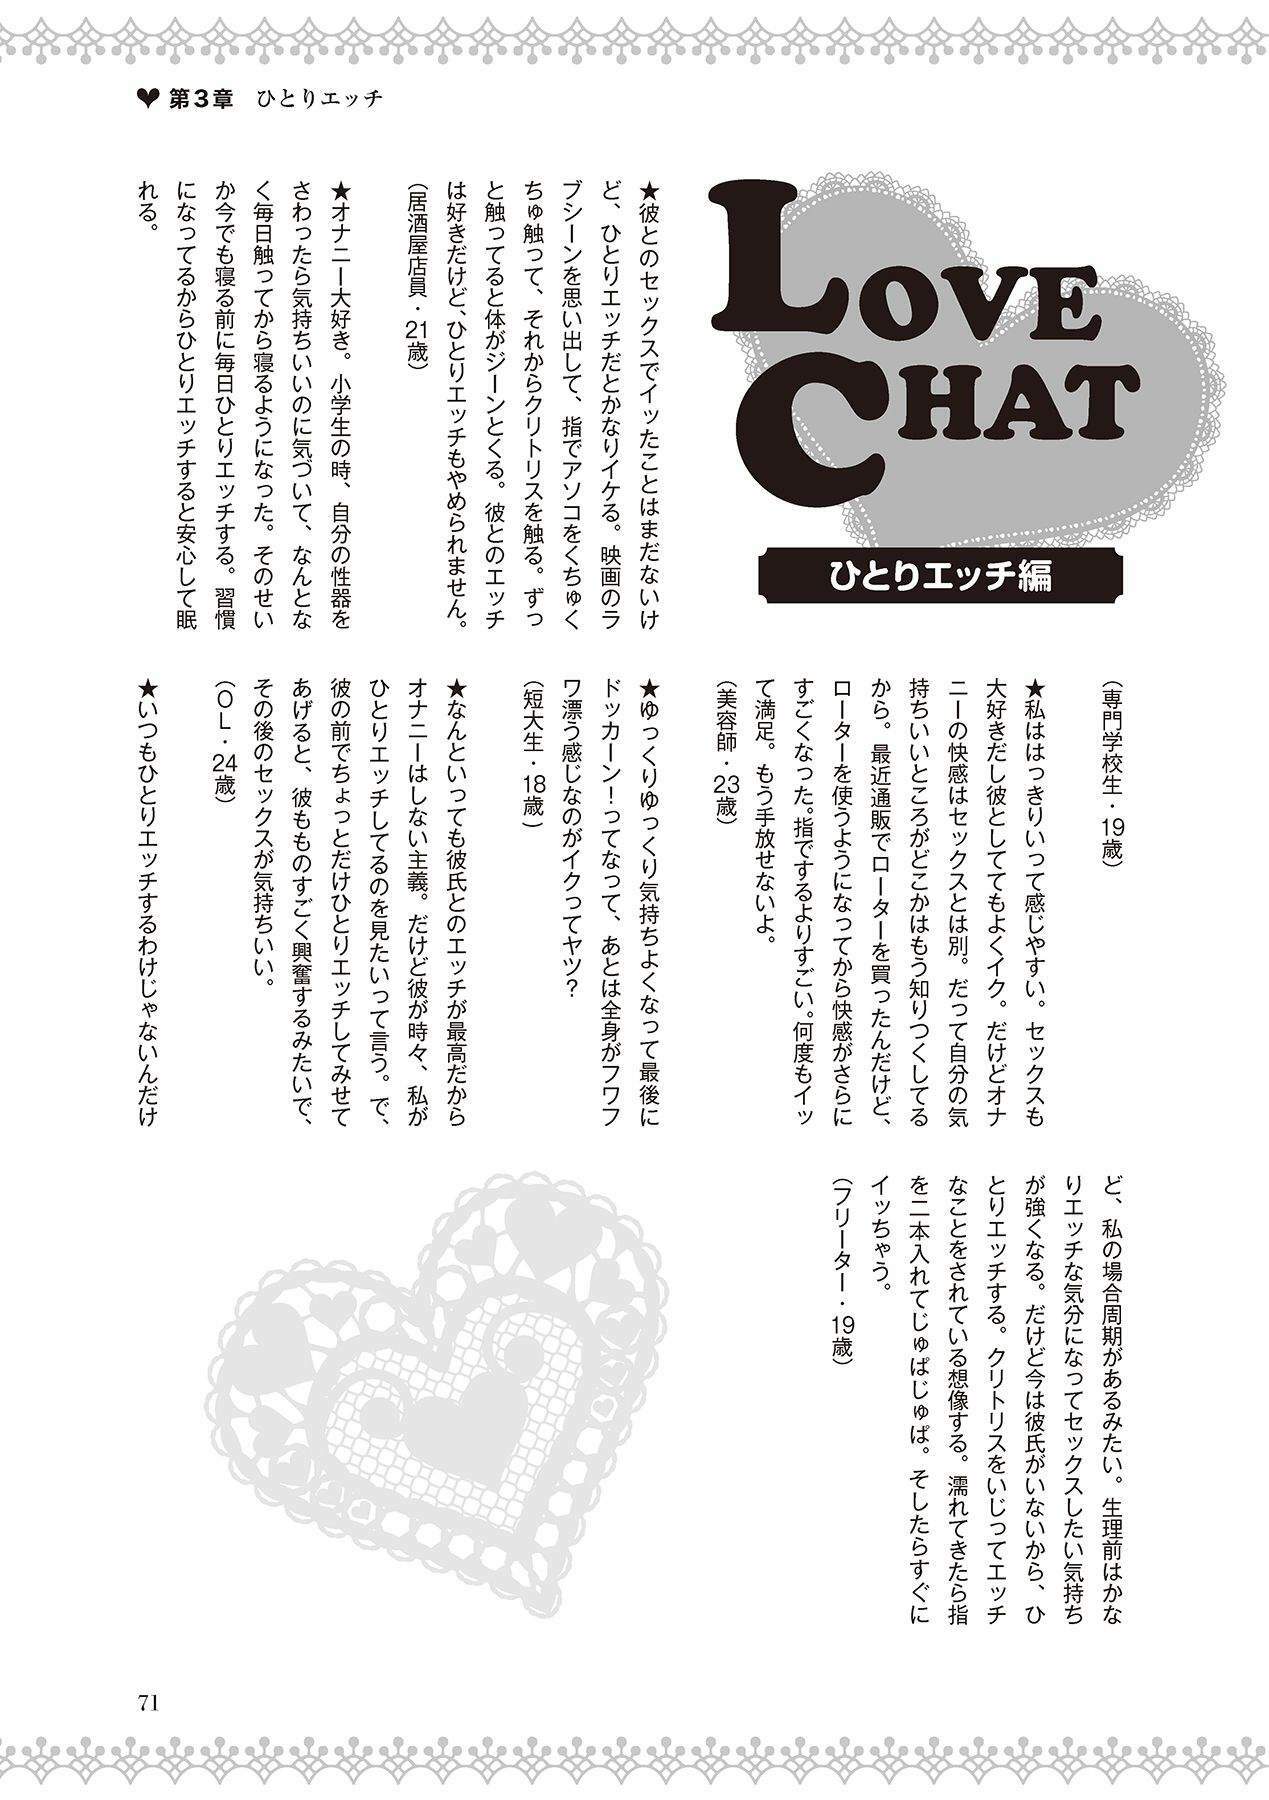 第3章 ひとりエッチ
LOVE
CHAT
ひとりエッチ編
★彼とのセックスでイッたことはまだないけ
ど、ひとりエッチだとかなりイケる。映画のラ
ブシーンを思い出して、指でアソコをくちゅく
ちゅ触って、それからクリトリスを触る。ずっ
と触ってると体がジーンとくる。彼とのエッチ
は好きだけど、ひとりエッチもやめられません。
(居酒屋店員・21歳)
★オナニー大好き。小学生の時、自分の性器を
さわったら気持ちいいのに気づいて、なんとな
く毎日触ってから寝るようになった。そのせい
か今でも寝る前に毎日ひとりエッチする。習慣
になってるからひとりエッチすると安心して眠
れる。
(専門学校生・19歳)
★私ははっきりいって感じやすい。セックスも
大好きだし彼としててもよくイク。だけどオナ
ニーの快感はセックスとは別。だって自分の気
持ちいいところがどこかはもう知りつくしてる
から。最近通販でローターを買ったんだけど、
ローターを使うようになってから快感がさらに
すごくなった。指でするよりすごい。何度もイッ
て満足。もう手放せないよ。
(美容師・23歳)
★ゆっくりゆっくり気持ちよくなって最後に
ドッカーン!ってなって、あとは全身がフワフ
ワ漂う感じなのがイクってヤツ?
(短大生・18歳)
★なんといっても彼氏とのエッチが最高だから
オナニーはしない主義。だけど彼が時々、私が
ひとりエッチしてるのを見たいって言う。で、
彼の前でちょっとだけひとりエッチしてみせて
あげると、彼もものすごく興奮するみたいで、
その後のセックスが気持ちいい。
(OL・24歳)
★いつもひとりエッチするわけじゃないんだけ
ど、私の場合周期があるみたい。生理前はかな
りエッチな気分になってセックスしたい気持ち
が強くなる。だけど今は彼氏がいないから、ひ
とりエッチする。クリトリスをいじってエッチ
なことをされている想像する。濡れてきたら指
を二本入れてじゅぱじゅぱ。そしたらすぐに
イッちゃう。
(フリーター・19歳)
71